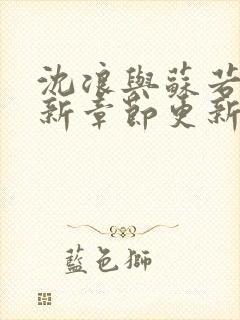 沈浪與蘇若
新章節更新
藍色獅